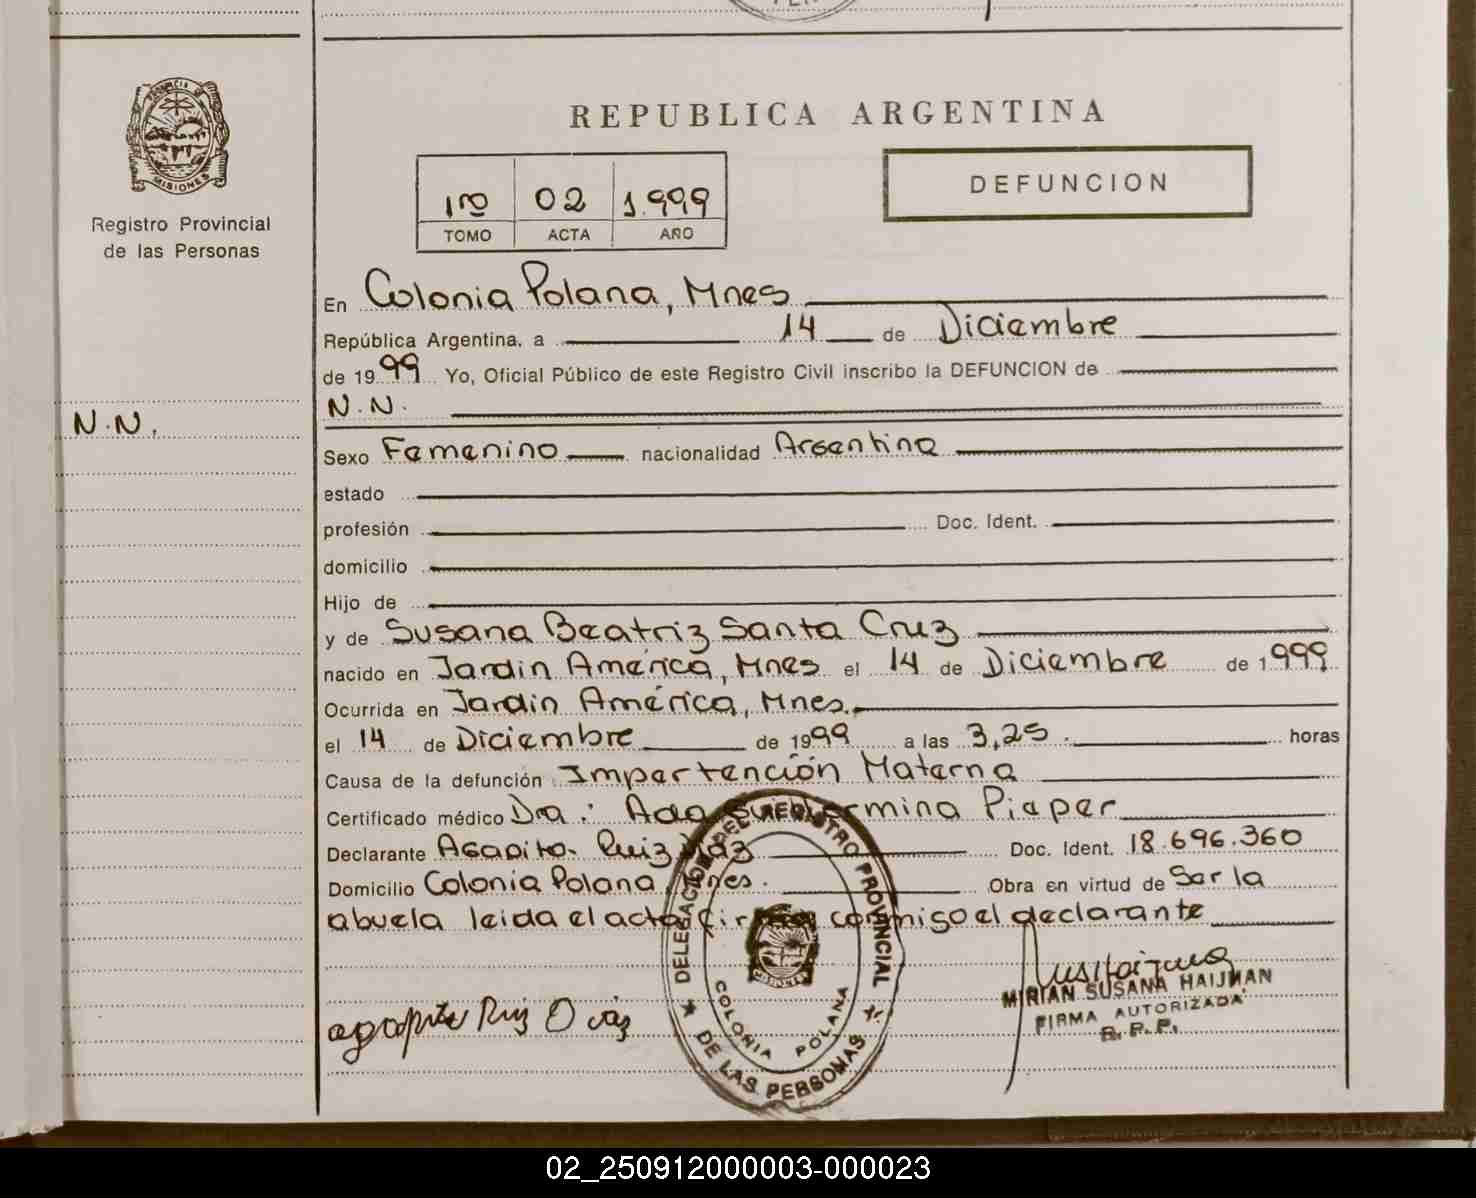 PROVINCIA DE
MISIONES
Registro Provincial
de las Personas
N.N.
REPUBLICA ARGENTINA
1ro 02 1.999
TOMO ACTA AÑO
DEFUNCION
En Colonia Polana, Mnes
República Argentina, a 14 de Diciembre
de 1999 Yo, Oficial Público de este Registro Civil inscribo la DEFUNCION de
N.N.
Sexo Femenino nacionalidad Argentina
estado
profesión Doc. Ident.
domicilio
Hijo de
y de Susana Beatriz Santa Cruz
nacido en Jardin América, Mnes el 14 de Diciembre de 1999
Ocurrida en Jardin América, Mnes.
el 14 de Diciembre de 1999 a las 3,25. horas
Causa de la defunción Impertención Materna
Certificado médico Dra: Ada Guillermina Pieper
Declarante Agapito Ruiz Diaz Doc. Ident. 18.696.360
Domicilio Colonia Polana, Mnes. Obra en virtud de Ser la
abuela leida el acta firma conmigo el declarante
agapito Ruiz Diaz
DELEGACION DEL REGISTRO PROVINCIAL
DE LAS PERSONAS
COLONIA POLANA
MIRIAN SUSANA HAIJMAN
FIRMA AUTORIZADA
R.P.P.
02_250912000003-000023